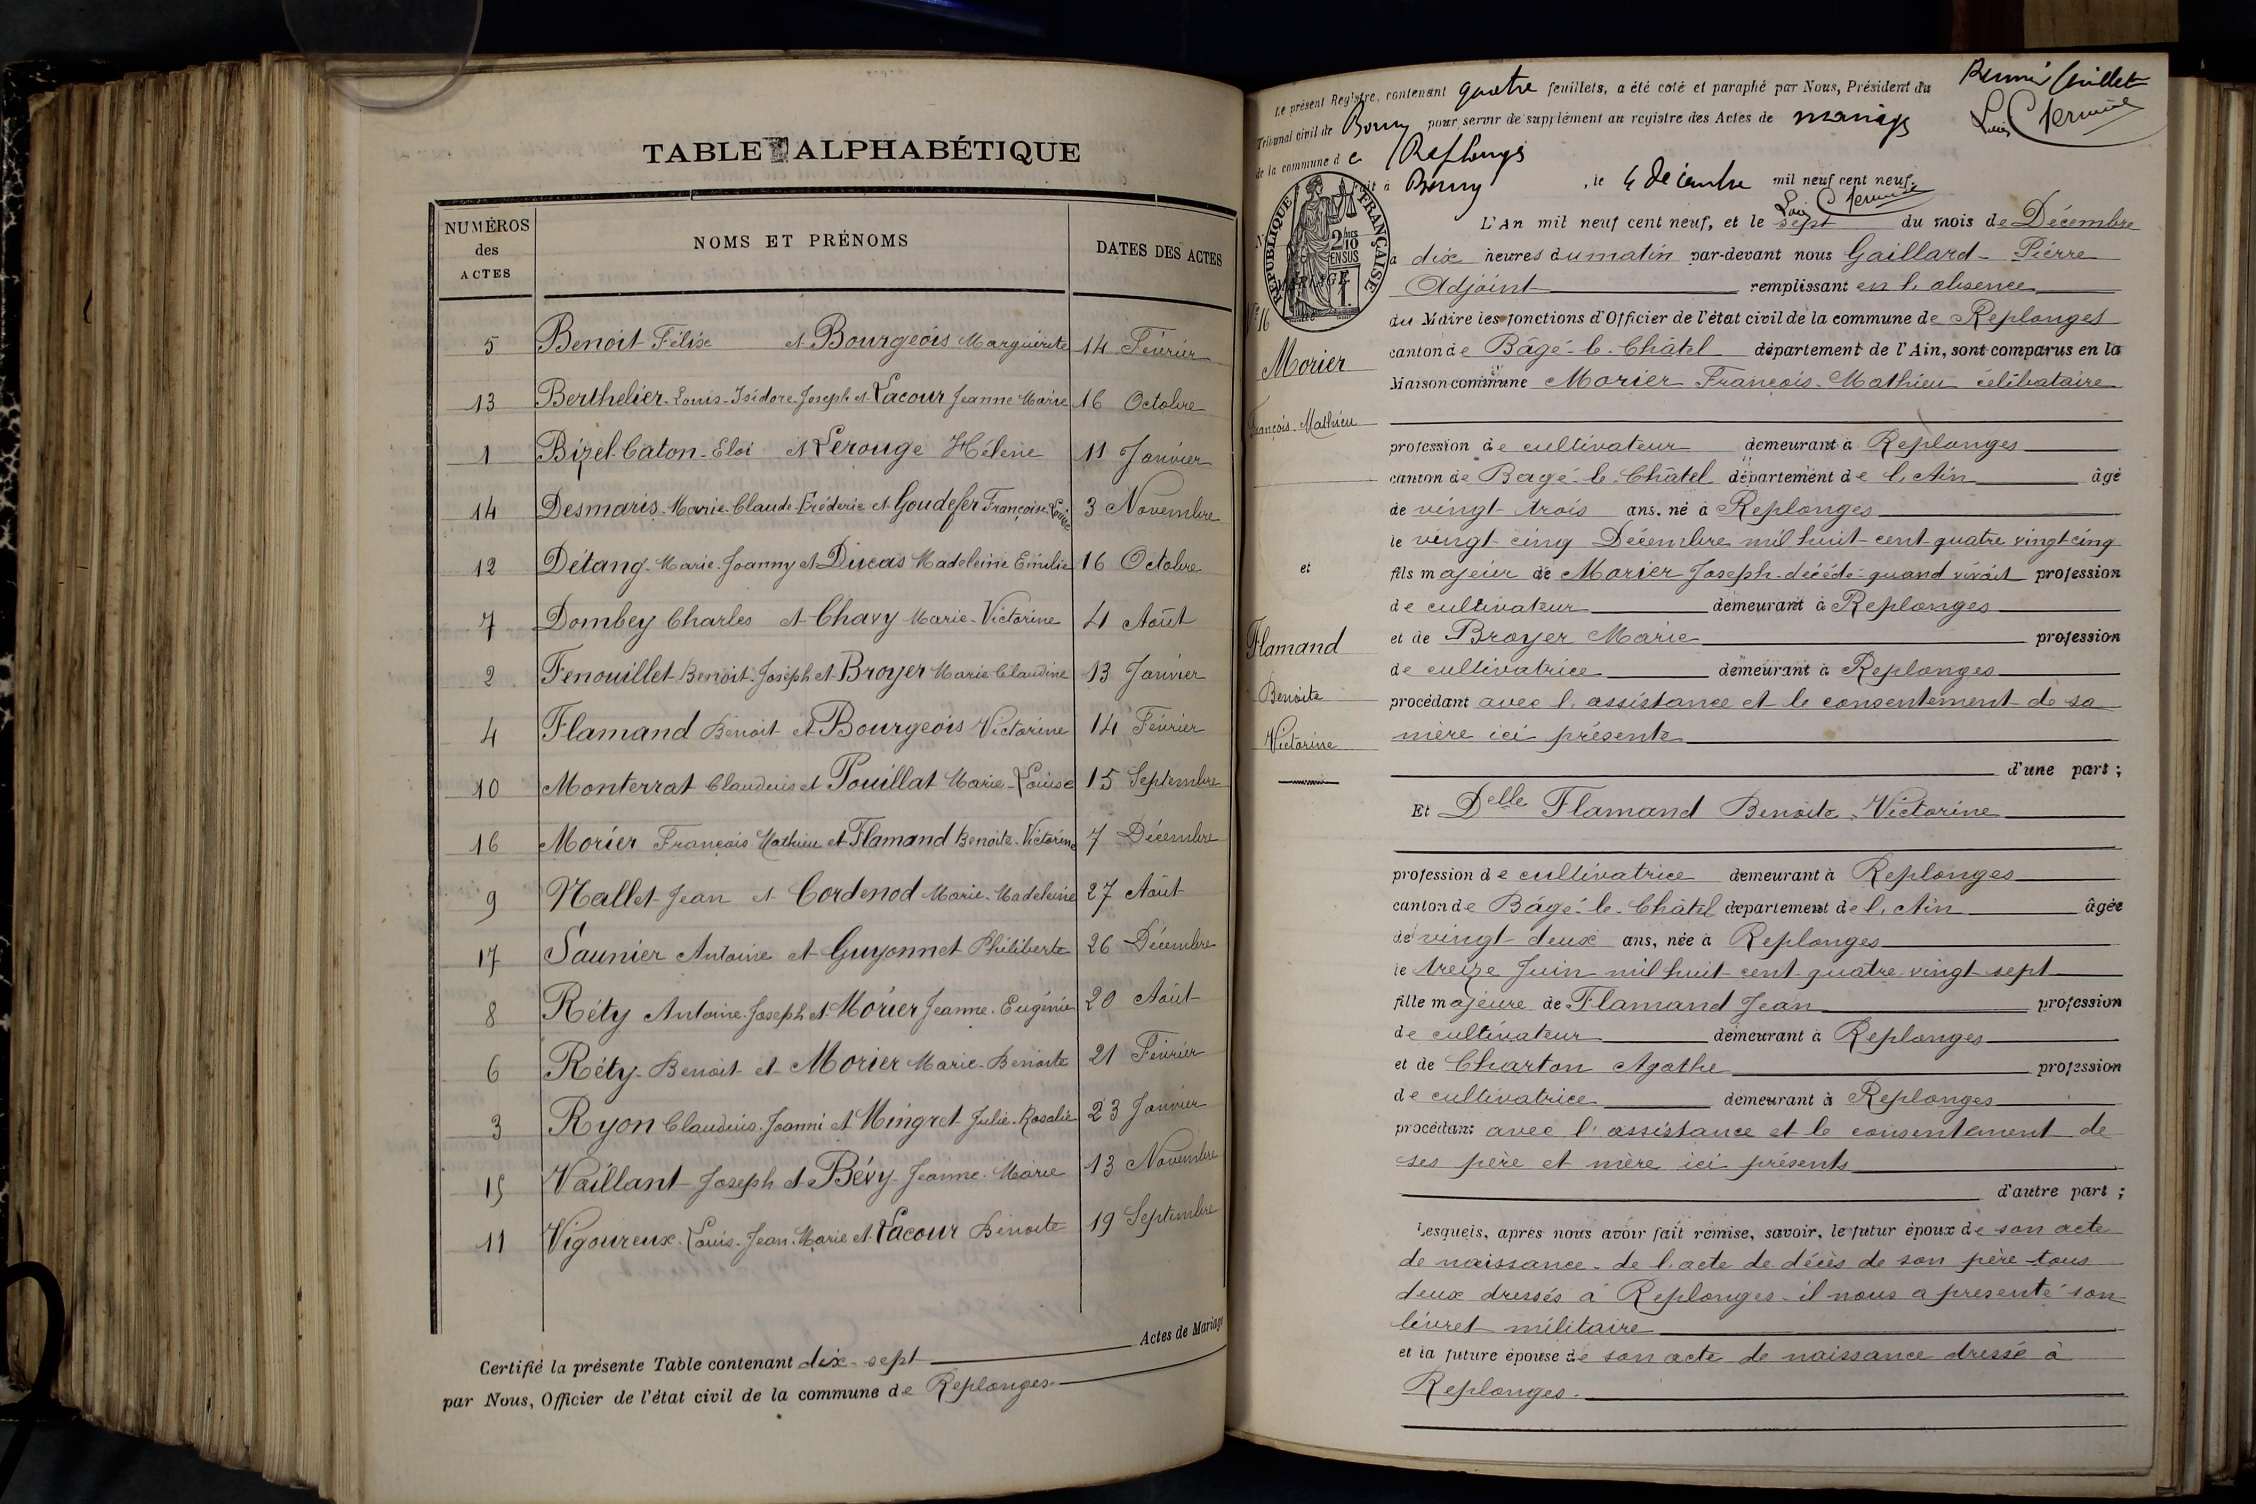 TABLE ALPHABÉTIQUE
NUMÉROS des ACTES NOMS ET PRÉNOMS DATES DES ACTES
5 Benoit Félix et Bourgeois Marguerite 14 Février
13 Berthelier Louis-Isidore-Joseph et Lacour Jeanne Marie 16 Octobre
1 Bizel-Caton-Eloi et Lerouge Hélène 11 Janvier
14 Desmaris Marie-Claude-Fréderic et Goudefer Françoise Louise 3 Novembre
12 Détang Marie-Joanny et Ducas Madeleine Emilie 16 Octobre
7 Dombey Charles et Chavy Marie-Victorine 4 Août
2 Fenouillet Benoit-Joseph et Broyer Marie Claudine 13 Janvier
4 Flamand Benoit et Bourgeois Victorine 14 Février
10 Monterrat Claudius et Pouillat Marie-Louise 15 Septembre
16 Morier François Mathieu et Flamand Benoite-Victorine 7 Décembre
9 Nallet Jean et Cordenod Marie-Madeleine 27 Août
17 Saunier Antoine et Guyonnet Philiberte 26 Décembre
8 Réty Antoine-Joseph et Morier Jeanne-Eugénie 20 Août
6 Réty Benoit et Morier Marie-Benoite 21 Février
3 Ryon Claudius-Joanni et Mingret Julie-Rosalie 23 Janvier
15 Vaillant Joseph et Bévy Jeanne-Marie 13 Novembre
11 Vigoureux Louis-Jean-Marie et Lacour Benoite 19 Septembre
Certifié la présente Table contenant dix-sept Actes de Mariage
par Nous, Officier de l'état civil de la commune de Replonges
Le présent Registre, contenant quatre feuillets, a été coté et paraphé par Nous, Président du
Tribunal civil de Bourg pour servir de supplément au registre des Actes de mariage
de la commune de Replonges
Fait à Bourg, le 4 décembre mil neuf cent neuf.
feuillet
RÉPUBLIQUE FRANÇAISE
2/10 EN SUS
Nº 16
Morier
François-Mathieu
et
Flamand
Benoite
Victorine
L'An mil neuf cent neuf, et le sept du mois de Décembre
à dix heures du matin par-devant nous Gaillard Pierre
Adjoint remplissant en l'absence
du Maire les fonctions d'Officier de l'état civil de la commune de Replonges
canton de Bâgé-le-Châtel département de l'Ain, sont comparus en la
Maison commune Morier François-Mathieu célibataire
profession de cultivateur demeurant à Replonges
canton de Bagé-le-Châtel département de l'Ain âgé
de vingt-trois ans, né à Replonges
le vingt-cinq Décembre mil huit-cent-quatre vingt cinq
fils majeur de Morier Joseph décédé quand vivait profession
de cultivateur demeurant à Replonges
et de Broyer Marie profession
de cultivatrice demeurant à Replonges
procédant avec l'assistance et le consentement de sa
mère ici présente
d'une part ;
Et Delle Flamand Benoite Victorine
profession de cultivatrice demeurant à Replonges
canton de Bâgé-le-Châtel département de l'Ain âgée
de vingt-deux ans, née à Replonges
le treize Juin mil huit-cent-quatre-vingt sept
fille majeure de Flamand Jean profession
de cultivateur demeurant à Replonges
et de Charton Agathe profession
de cultivatrice demeurant à Replonges
procédant avec l'assistance et le consentement de
ses père et mère ici présents
d'autre part ;
Lesquels, après nous avoir fait remise, savoir, le futur époux de son acte
de naissance de l'acte de décès de son père tous
deux dressés à Replonges il nous a présenté son
livret militaire
et la future épouse de son acte de naissance dressé à
Replonges.